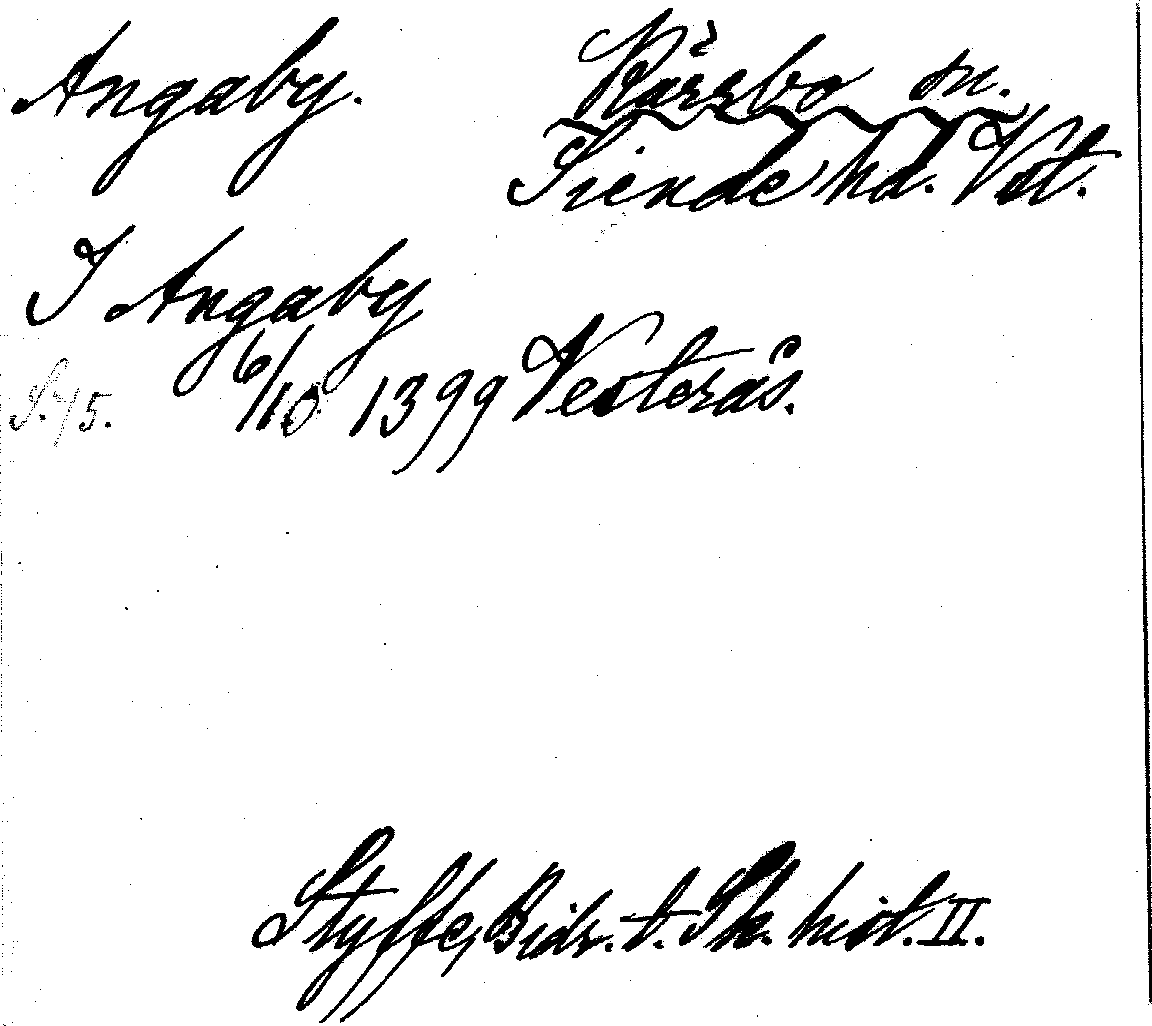 Angaby. Kärrbo sn.
Siende hd. Vst.
I Angaby
S. 75. 6/10 1399 Vesterås.
Styffe, Bidr. t. Sk. hist. II.